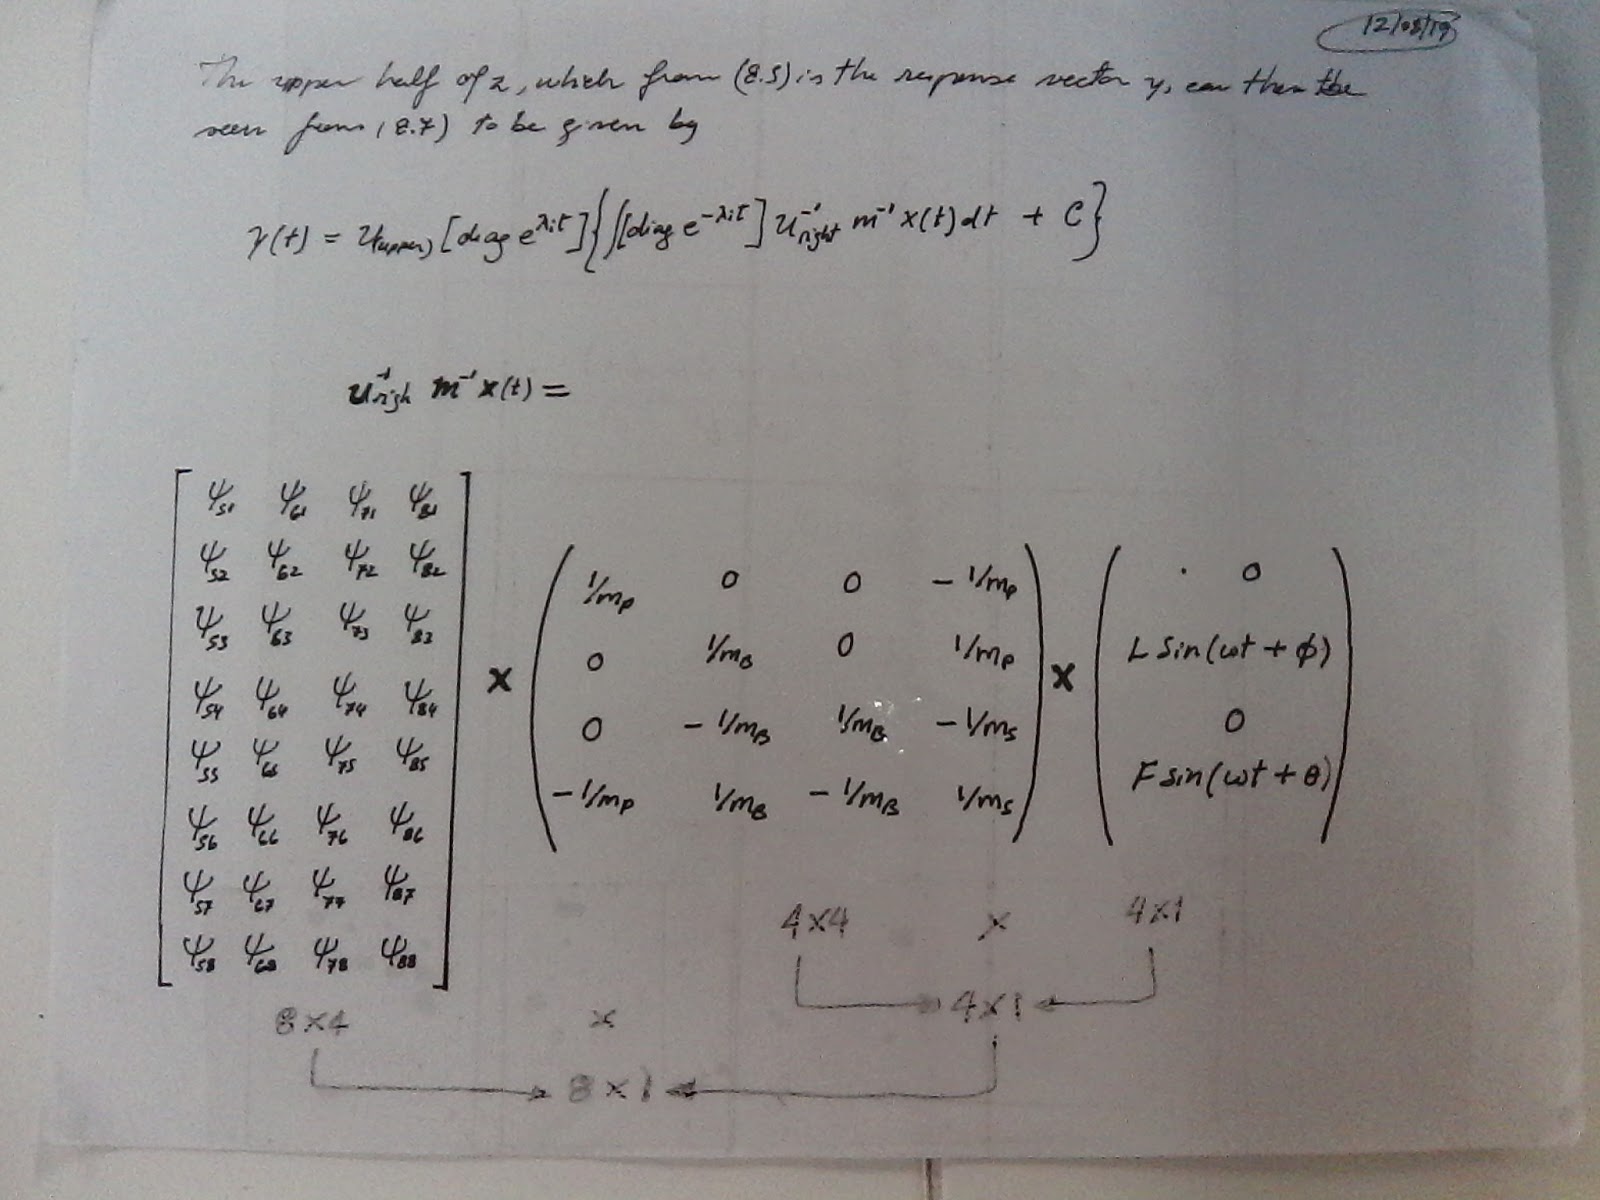 12/08/19
The upper half of z, which from (8.5) is the response vector y, can then be
seen from (8.7) to be given by
y(t) = U(upper) [diag e^λit] { ∫[diag e^-λit] U⁻¹right m⁻¹ x(t) dt + C }
U⁻¹righ m⁻¹ x(t) =
ψ51 ψ61 ψ71 ψ81
ψ52 ψ62 ψ72 ψ82
ψ53 ψ63 ψ73 ψ83
ψ54 ψ64 ψ74 ψ84
ψ55 ψ65 ψ75 ψ85
ψ56 ψ66 ψ76 ψ86
ψ57 ψ67 ψ77 ψ87
ψ58 ψ68 ψ78 ψ88
x
1/mp 0 0 - 1/mp
0 1/mB 0 1/mp
0 - 1/mB 1/mB - 1/ms
- 1/mp 1/mB - 1/mB 1/ms
x
0
L Sin(ωt + φ)
0
F sin(ωt + θ)
4x4 x 4x1
4x1
8x4 x
8x1